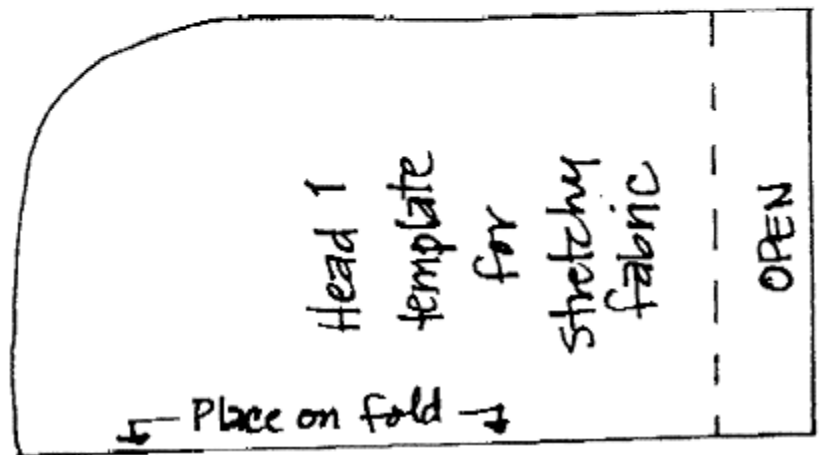 Head 1
template
for
stretchy
fabric
OPEN
Place on fold